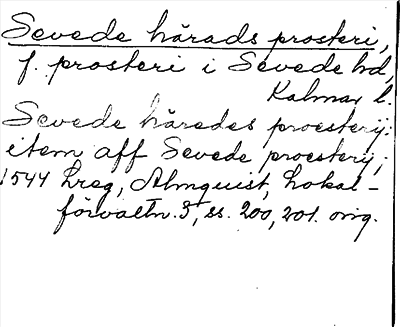 Sevede härads prosteri,
f. prosteri i Sevede hd,
Kalmar l.
Sevede häredes proesterij:
item aff Sevede proesterij;
1544 Lreg, Almquist, Lokal-
förvaltn. 3, ss. 200, 201. orig.